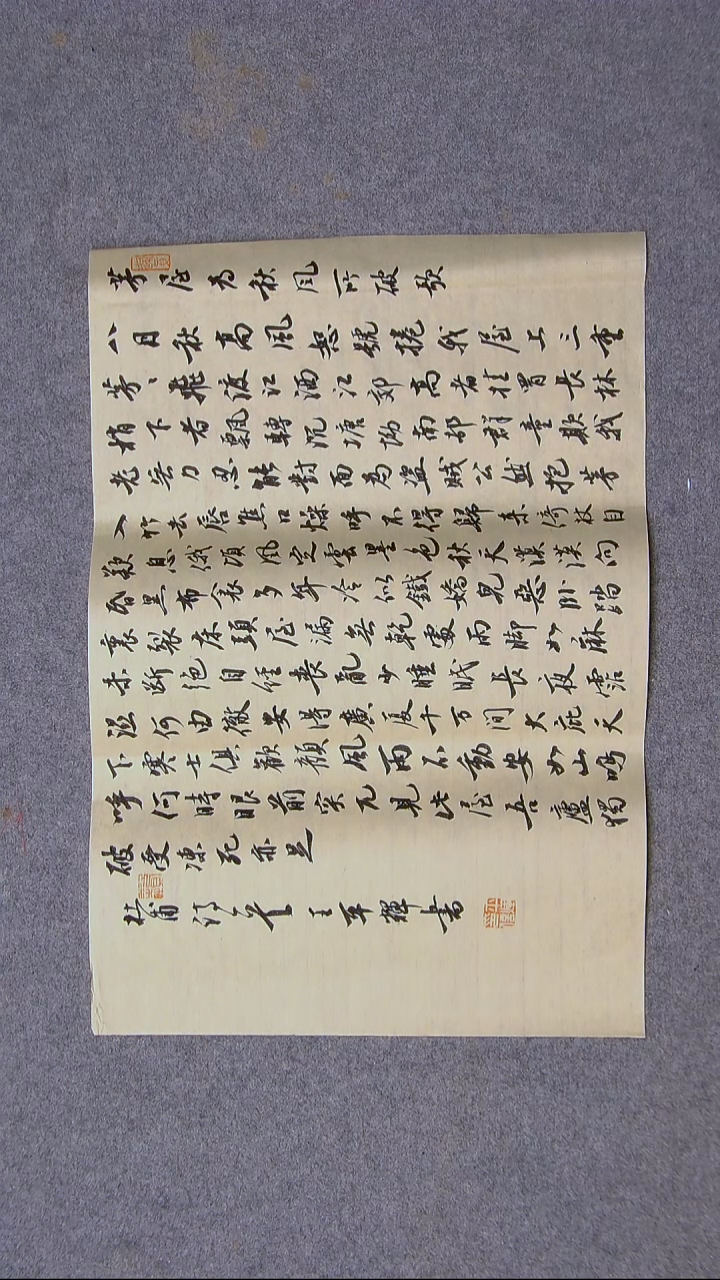 茅屋为秋风所破歌
八月秋高風怒號捲我屋上三重
茅、飛渡江洒江郊高者挂罥長林
梢下者飄轉沉塘坳南邨群童欺我
老无力忍能對面為盜賊公然抱茅
入竹去唇焦口燥呼不得歸来倚杖自
歎息俄頃風定雲墨色秋天漠漠向
昏黑布衾多年冷似鐵嬌兒惡卧踏
裏裂床頭屋漏無乾處雨脚如麻
未斷绝自經喪亂少睡眠長夜霑
濕何由徹安得廣厦千万間大庇天
下寒士俱歡顏風雨不動安如山嗚
呼何時眼前突兀見此屋吾廬獨
破受凍死亦足
杜甫诗一首 王軍輝書